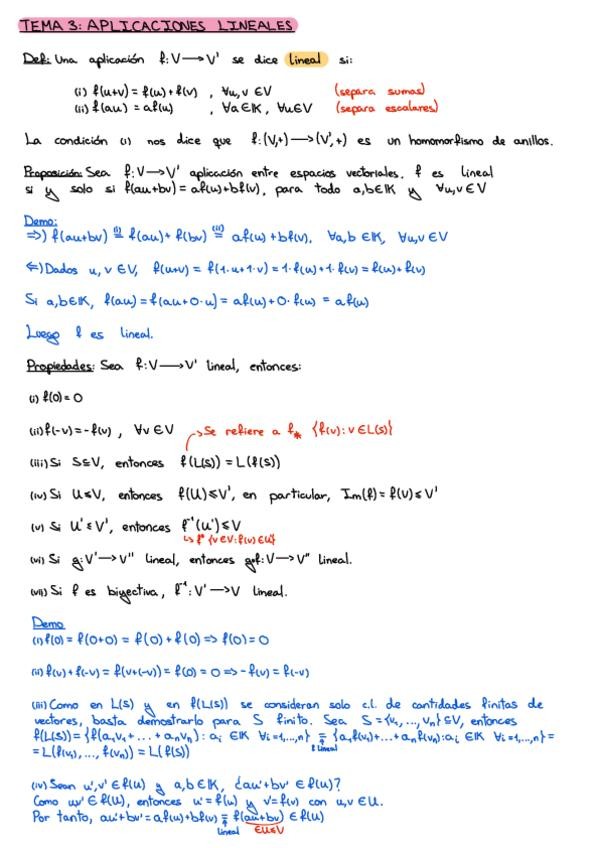 TEMA 3: APLICACIONES LINEALES
Def: Una aplicación f: V⟶V' se dice lineal si:
(i) f(u+v) = f(u)+f(v) , ∀u,v ∈V (separa sumas)
(ii) f(au) = af(u) , ∀a∈K, ∀u∈V (separa escalares)
La condición (i) nos dice que f:(V,+)⟶(V',+) es un homomorfismo de anillos.
Proposición: Sea f:V⟶V' aplicación entre espacios vectoriales. f es lineal
si y solo si f(au+bv) = af(u)+bf(v), para todo a,b∈K y ∀u,v∈V
Demo:
⇒) f(au+bv) (i)= f(au)+ f(bv) (ii)= af(u)+bf(v), ∀a,b ∈K, ∀u,v∈V
⇐) Dados u,v∈V, f(u+v) = f(1·u+1·v) = 1·f(u)+1·f(v) = f(u)+f(v)
Si a,b∈K, f(au) = f(au+0·u) = af(u)+0·f(u) = af(u)
Luego f es lineal.
Propiedades: Sea f:V⟶V' lineal, entonces:
(i) f(0) = 0
(ii) f(-v) = -f(v) , ∀v∈V
→Se refiere a f* {f(v): v∈L(S)}
(iii) Si S⊆V, entonces f(L(S)) = L(f(S))
(iv) Si U≤V, entonces f(U)≤V', en particular, Im(f) = f(V)≤V'
(v) Si U'≤V', entonces f⁻¹(U')≤V
↳ f* {v∈V: f(v)∈U'}
(vi) Si g:V'⟶V'' lineal, entonces g∘f: V⟶V'' lineal.
(vii) Si f es biyectiva, f⁻¹: V'⟶V lineal.
Demo
(i) f(0) = f(0+0) = f(0)+f(0) ⇒ f(0) = 0
(ii) f(v)+f(-v) = f(v+(-v)) = f(0) = 0 ⇒ -f(v) = f(-v)
(iii) Como en L(S) y en f(L(S)) se consideran solo c.l. de cantidades finitas de
vectores, basta demostrarlo para S finito. Sea S = {v₁, ..., vₙ} ⊆V, entonces
f(L(S)) = {f(a₁v₁+ ... +aₙvₙ): aᵢ ∈K ∀i=1,...,n} = {a₁f(v₁)+...+aₙf(vₙ): aᵢ ∈K ∀i=1,...,n} =
f lineal
= L(f(v₁), ..., f(vₙ)) = L(f(S))
(iv) Sean u',v' ∈f(U) y a,b∈K, ¿au'+bv' ∈f(U)?
Como u',v' ∈f(U), entonces u'=f(u) y v'=f(v) con u,v∈U.
Por tanto, au'+bv' = af(u)+bf(v) = f(au+bv) ∈f(U)
lineal ∈U≤V